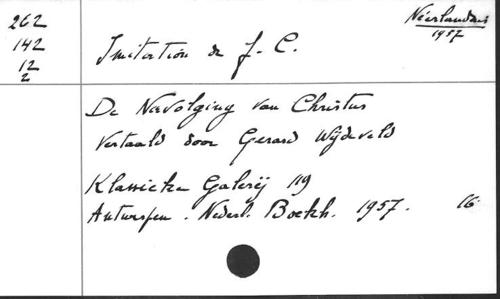 262
142
12
2
Imitation de J. C.
Néerlandais
1957
De Navolging van Christus
vertaald door Gerard Wijdeveld
Klassieke Galerij 119
Antwerpen. Nederl. Boekh. 1957. 16